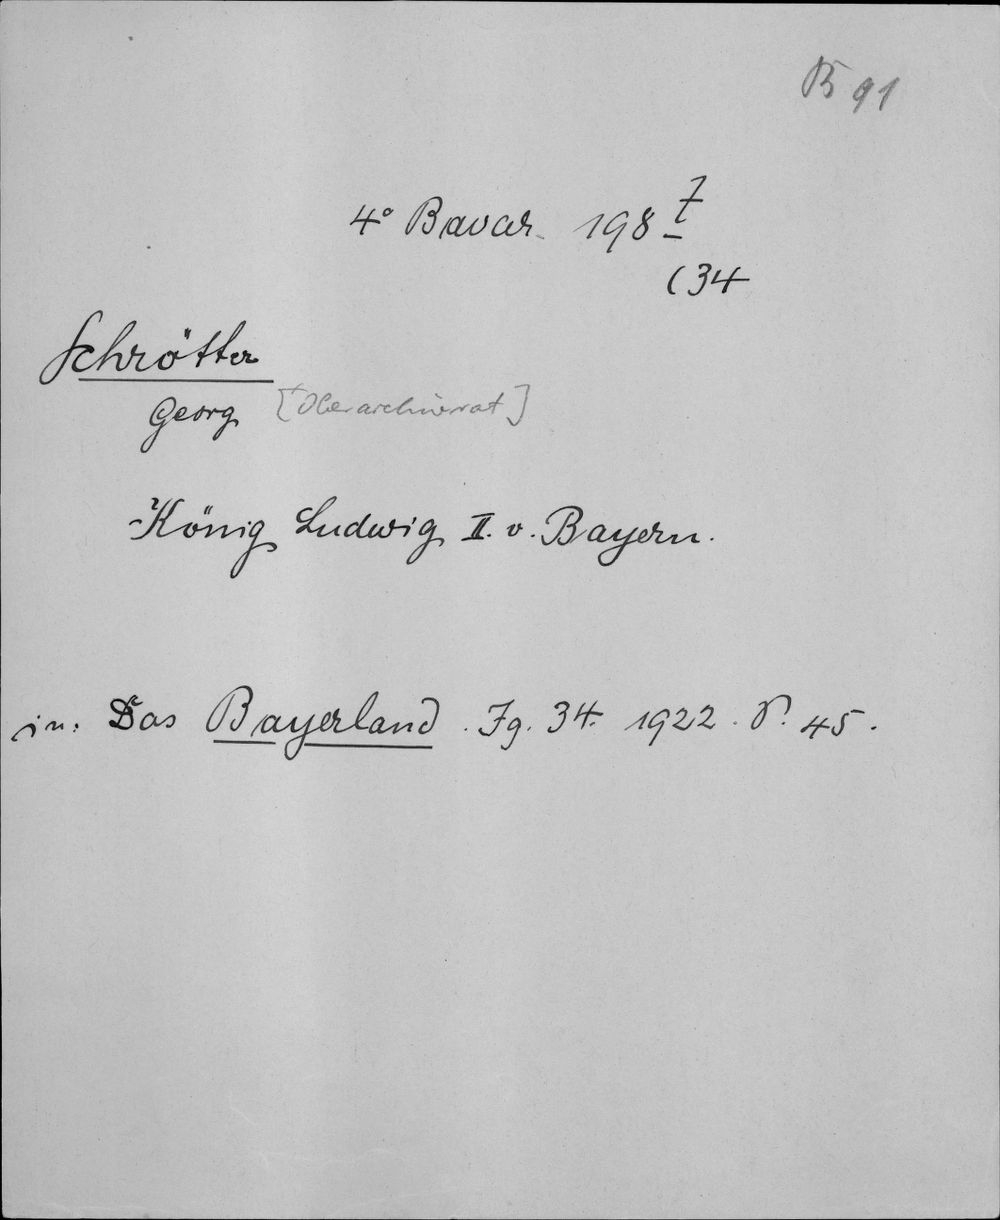 B 91
4° Bavar. 198 t
(34
Schrötter
Georg [Oberarchivrat]
König Ludwig II. v. Bayern.
in: Das Bayerland. Jg. 34. 1922. S. 45.